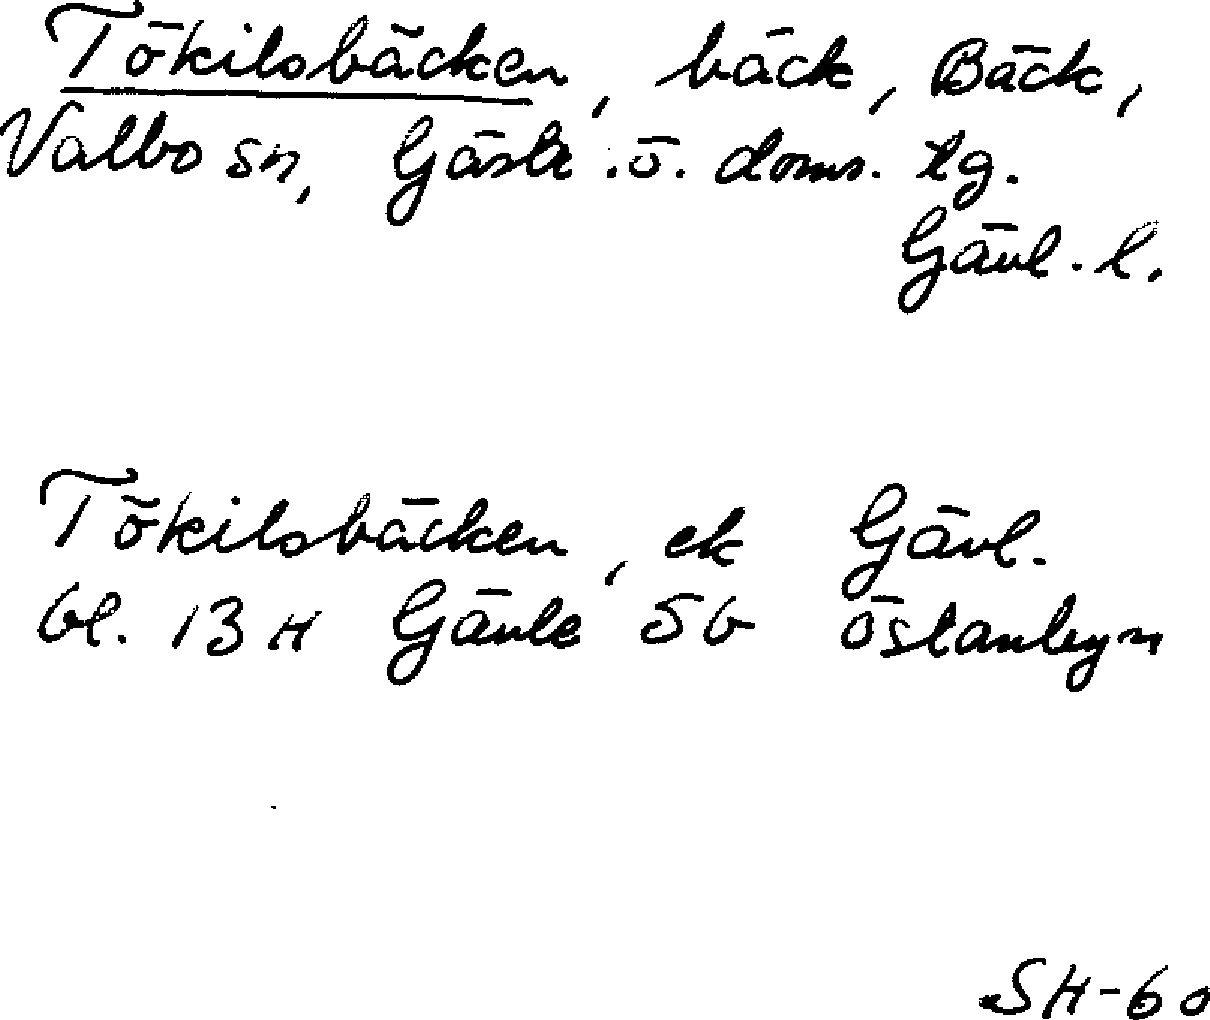 Tökilsbäcken, bäck, Bäck,
Valbo sn, Gästr. ö. doms. tg.
Gävl. l.
Tökilsbäcken, ek Gävl.
bl. 13 H Gävle 5 b Östanbyn
SH-60